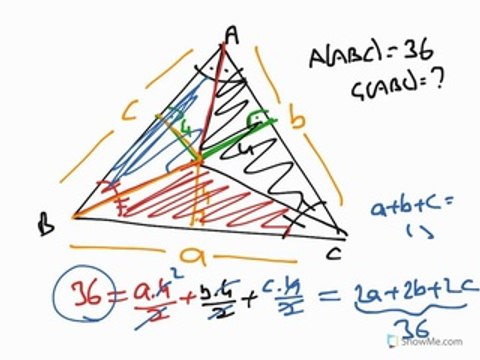 A
A(ABC) = 36
Ç(ABC) = ?
c
b
4
4
B
a
C
a+b+c =
36 = a.4/2 + b.4/2 + c.4/2 = 2a+2b+2c
2
36
ShowMe.com